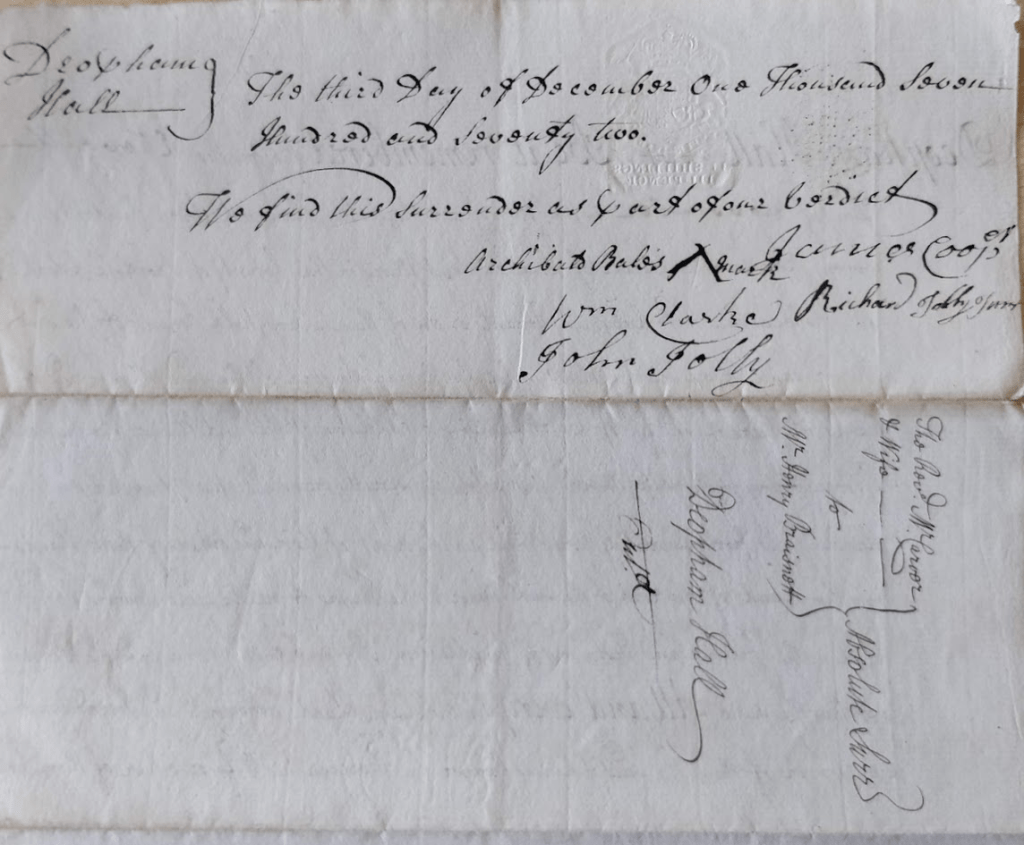 Deopham
Hall
The third Day of December One Thousand Seven
Hundred and Seventy two.
We find this Surrender as part of our Verdict
James Cooper
Archibald Bales X mark
Wm Clarke Richard Jolly Junr
John Jolly
The Revd. Mr. Carver
& Wife
to
Mr. Henry Braisnett
Absolute Surrr
Deopham Hall